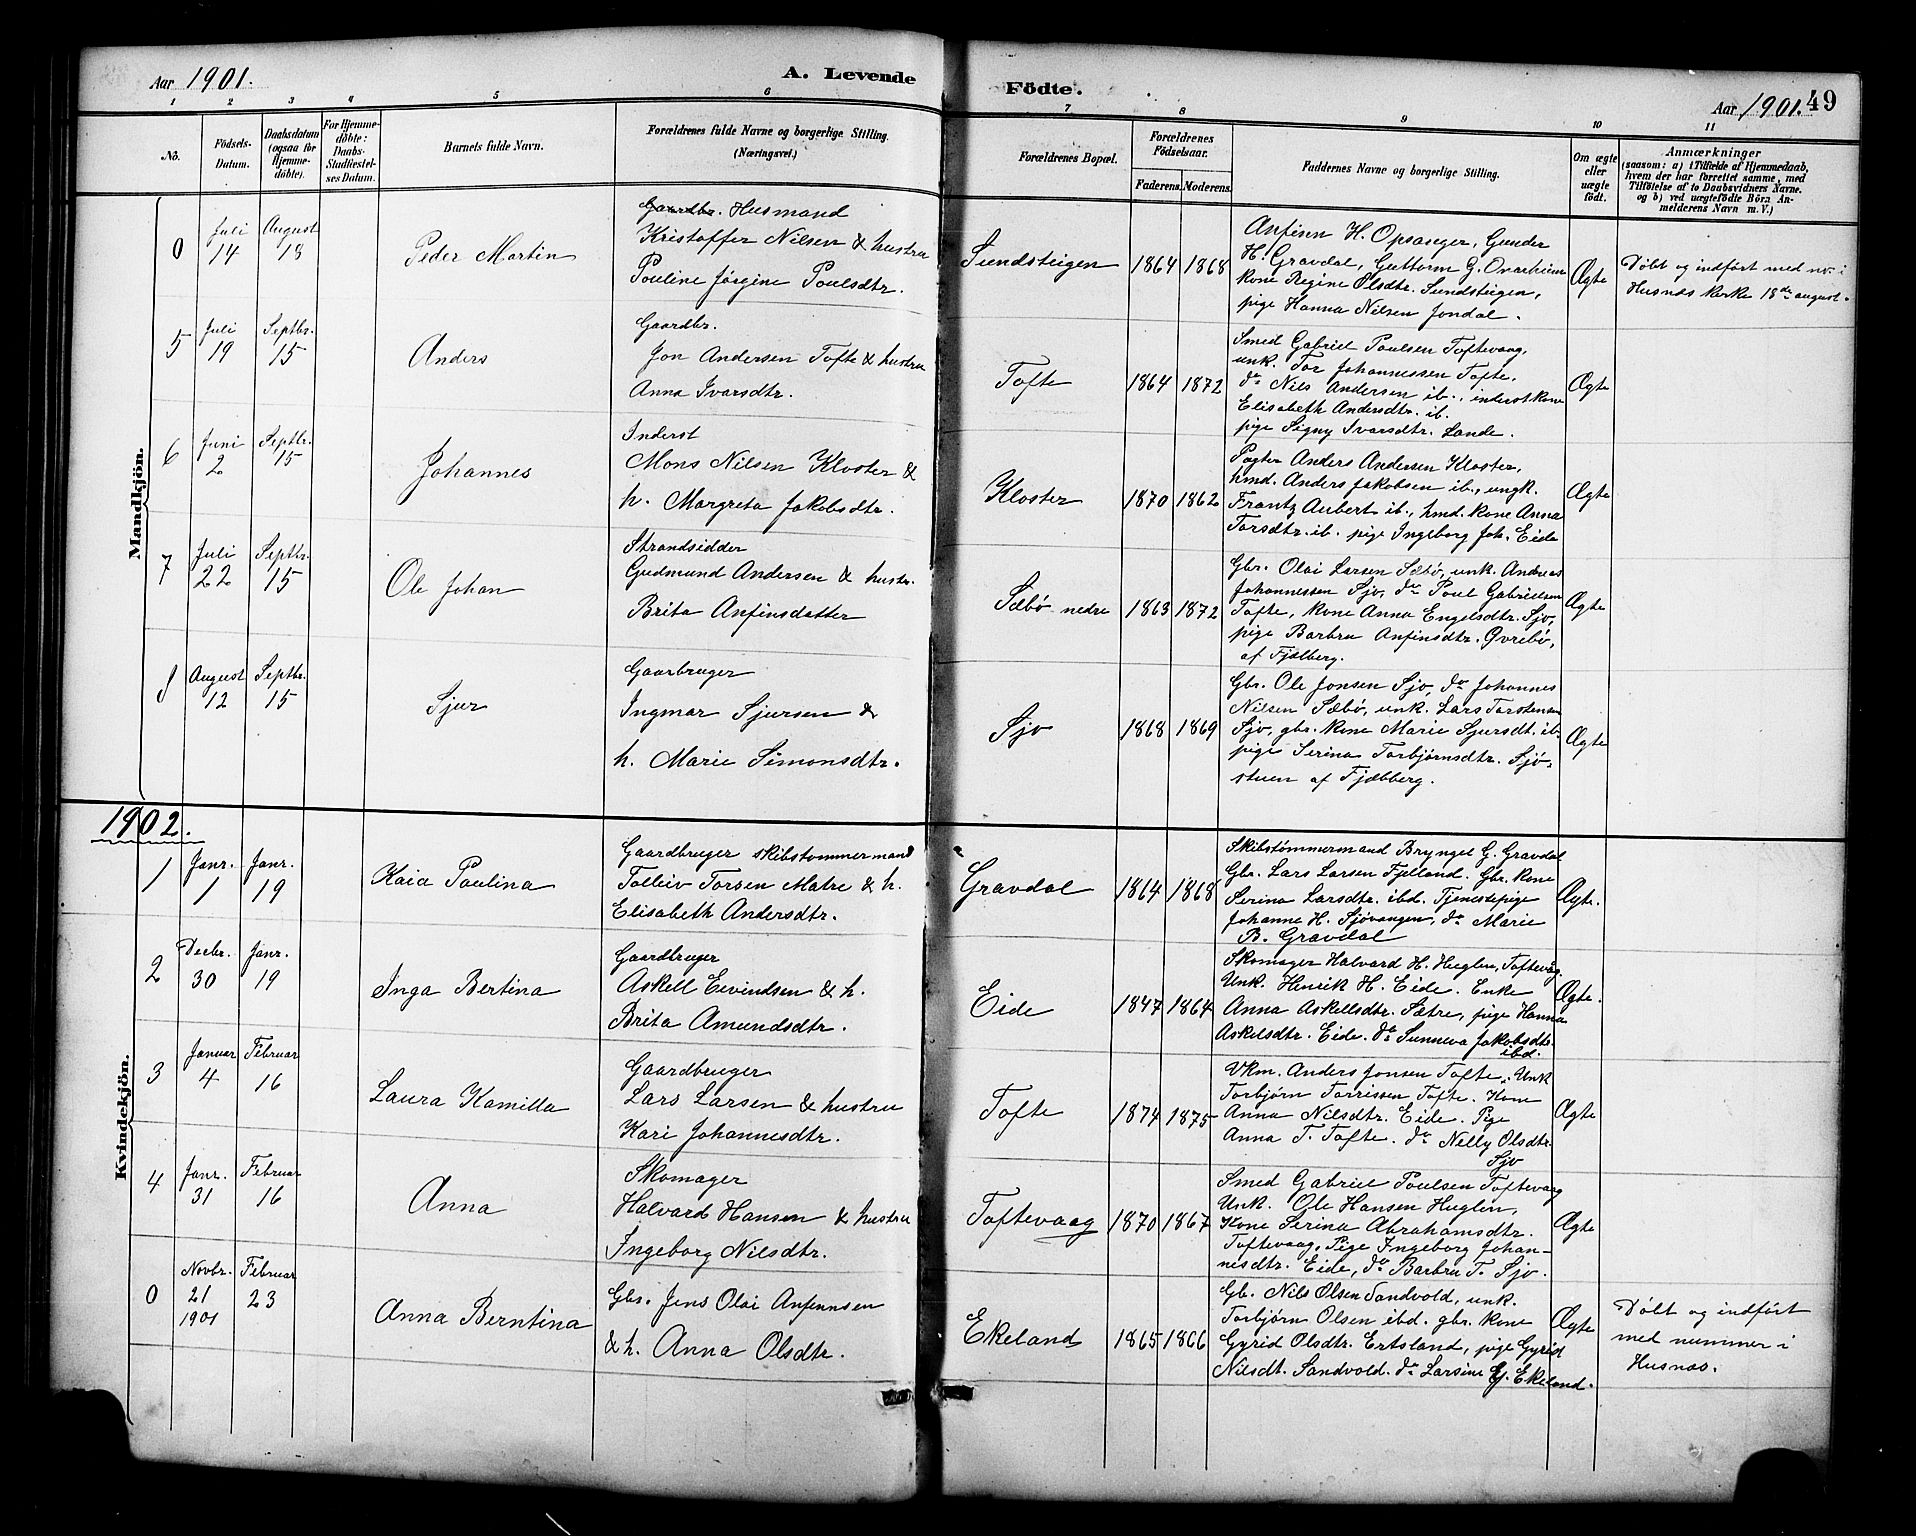 Aar 1901.
A. Levende
Födte.
Aar 1901.
49
1 2 3 4 5 6 7 8 9 10 11
No.
Födsels-
Datum.
Daabsdatum
(ogsaa for
Hjemme-
døbte).
For Hjemme-
døbte:
Daabs-
Stadfæstel-
ses Datum.
Barnets fulde Navn.
Forældrenes fulde Navne og borgerlige Stilling.
(Næringsvei.)
Forældrenes Bopæl.
Forældrenes
Födselsaar.
Faderens. Moderens.
Faddernes Navne og borgerlige Stilling.
Om ægte
eller
uægte
født.
Anmærkninger
(saasom: a) i Tilfælde af Hjemmedaab,
hvem der har forrettet samme, med
Tilføielse af to Daabsvidners Navne,
og b) ved uægtefödte Börn An-
melderens Navn m. V.)
Mandkjön.
0
Juli
14
August
18
Peder Martin
Gaardbr. Husmand
Kristoffer Nilsen & hustru
Pouline Jørgine Poulsdtr.
Sundsteigen
1864 1868
Anfinn H. Opsanger, Gunder
H. Gravdal, Guttorm G. Ovarheim
kone Regine Olsdtr. Sundsteigen,
pige Hanna Nilsen Jondal.
Ægte
Døbt og indført med nr. i
Husnæs kirke 18de august.
5
Juli
19
Septbr.
15
Anders
Gaardbr.
Jon Andersen Tofte & hustru
Anna Ivarsdtr.
Tofte
1864 1872
Smed Gabriel Poulsen Toftevaag,
unk. Tor Johannessen Tofte,
do Nils Andersen ib., inderst kone
Elisabeth Andersdtr. ib.
pige Signy Ivarsdtr. Lande.
Ægte
6
Juni
2
Septbr.
15
Johannes
Inderst
Mons Nilsen Kloster &
h. Margreta Jakobsdtr.
Kloster
1870 1862
Pagter Anders Andersen Kloster,
hmd. Anders Jakobsen ib., ungk.
Frantz Aubert ib., hmd. kone Anna
Torsdtr. ib. pige Ingeborg Joh. Eide
Ægte
7
Juli
22
Septbr.
15
Ole Johan
Strandsidder
Gudmund Andersen & hustr.
Brita Anfinsdatter
Sæbø nedre
1863 1872
Gbr. Olai Larsen Sæbø, unk. Andreas
Johannessen Sjo, do Poul Gabrielsen
Tofte, kone Anna Engelsdtr. Sjo,
pige Barbru Anfinsdtr. Øvrebø,
af Fjælberg.
Ægte
8
August
12
Septbr.
15
Sjur
Gaarbruger
Ingmar Sjursen &
h. Marie Simonsdtr.
Sjo
1868 1869
Gbr. Ole Jonsen Sjo, do Johannes
Nilsen Sæbø, unk. Lars Torstensen
Sjo, gbr. kone Marie Sjursdt. ib.
pige Serina Torbjørnsdtr. Sjø-
stuen af Fjælberg.
Ægte
1902.
Kvindekjön.
1
Janr.
1
Janr.
19
Kaia Paulina
Gaardbruger skibstømmermand
Tolleiv Torsen Matre & h.
Elisabeth Andersdtr.
Gravdal
1864 1868
Skibstømmermand Bryngel G. Gravdal
Gbr. Lars Larsen Fjelland. Gbr. kone
Serina Larsdtr. ibd. Tjenestepige
Johanne H. Sjøvangen, do Marie
B. Gravdal
Ægte.
2
Decbr.
30
Janr.
19
Inga Bertina
Gaardbruger
Askell Eivindsen & h.
Brita Amundsdtr.
Eide
1847 1864
Skomager Halvard H. Huglen, Toftevåg.
Unk. Henrik H. Eide. Enke
Anna Askellsdtr. Sætre, pige Hanna
Askelsdtr. Eide. do Sunneva Jakobsdtr.
ibd.
Ægte.
3
Januar
4
Februar
16
Laura Kamilla
Gaardbruger
Lars Larsen & hustru
Kari Johannesdtr.
Tofte
1874 1875
Vkm. Anders Jonsen Tofte. Unk
Torbjørn Torrissen Tofte. Kone
Anna Nilsdtr. Eide. Pige
Anna T. Tofte. do Nelly Olsdtr.
Sjo
Ægte
4
Janr.
31
Februar
16
Anna
Skomager
Halvard Hansen & hustru
Ingeborg Nilsdtr.
Toftevaag
1870 1867
Smed Gabriel Poulsen Toftevaag
Unk. Ole Hansen Huglen,
Kone Serina Abrahamsdtr.
Toftevaag, Pige Ingeborg Johan-
nisdtr. Eide, do Barbru T. Sjo.
Ægte
0
Novbr.
21
1901
Februar
23
Anna Berntina
Gbr. Jens Olai Anfinnsen
& h. Anna Olsdtr.
Ekeland
1865 1866
Gb. Nils Olsen Sandvold, unk.
Torbjørn Olsen ibd. gbr. kone
Gyrid Olsdtr. Ertsland, pige Gyrid
Nilsdt. Sandvold. do Larsine Ej. Ekeland.
Ægte
Døbt og indført
med nummer i
Husnæs.